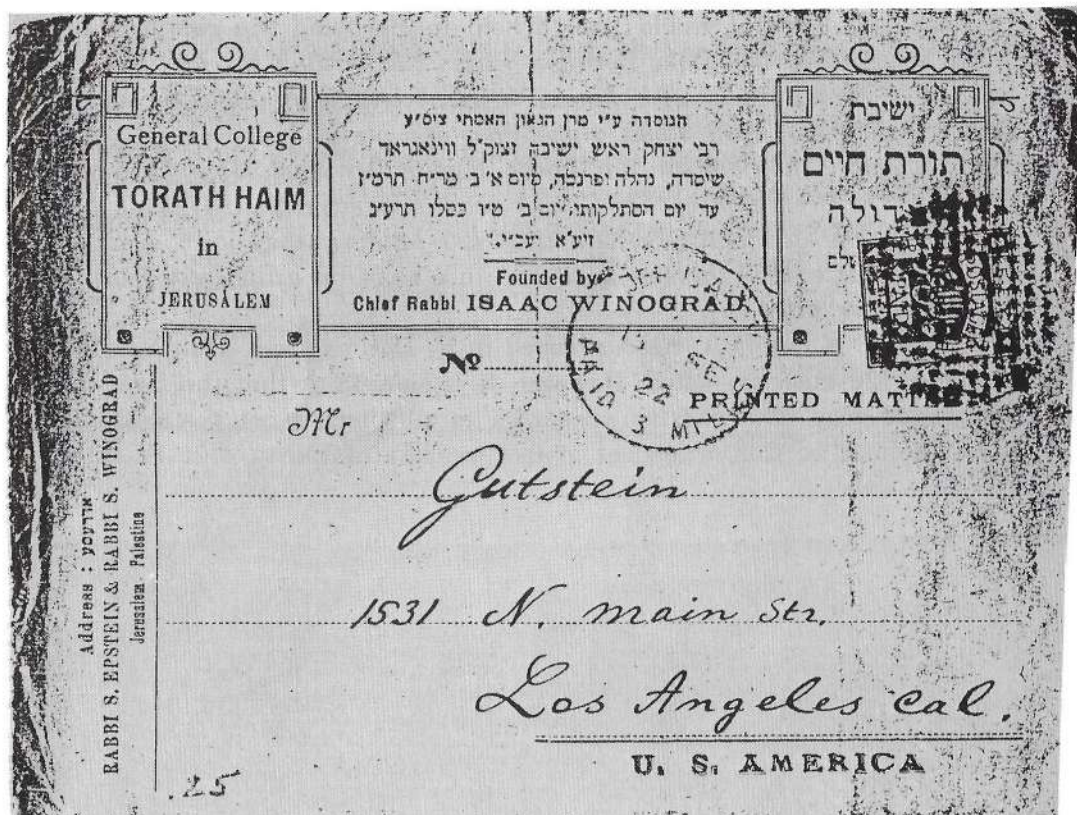 General College
TORATH HAIM
in
JERUSALEM
הנוסדה ע״י מרן הגאון האמתי ציס״ע
רבי יצחק ראש ישיבה זצוק״ל ווינאגראד
שיסדה, נהלה ופרנסה, מיום א׳ ב׳ מר״ח תרמ״ז
עד יום הסתלקותו יום ב׳ ט״ו כסלו תרע״ג
זיע״א
Founded by
Chief Rabbi ISAAC WINOGRAD
ישיבת
תורת חיים
No
PRINTED MATTER
PAID
22
3 MILS
Mr
Gutstein
1531 N. main Str.
Los Angeles Cal.
U. S. AMERICA
Address : אדרעסע
RABBI S. EPSTEIN & RABBI S. WINOGRAD
Jerusalem Palestine
.25